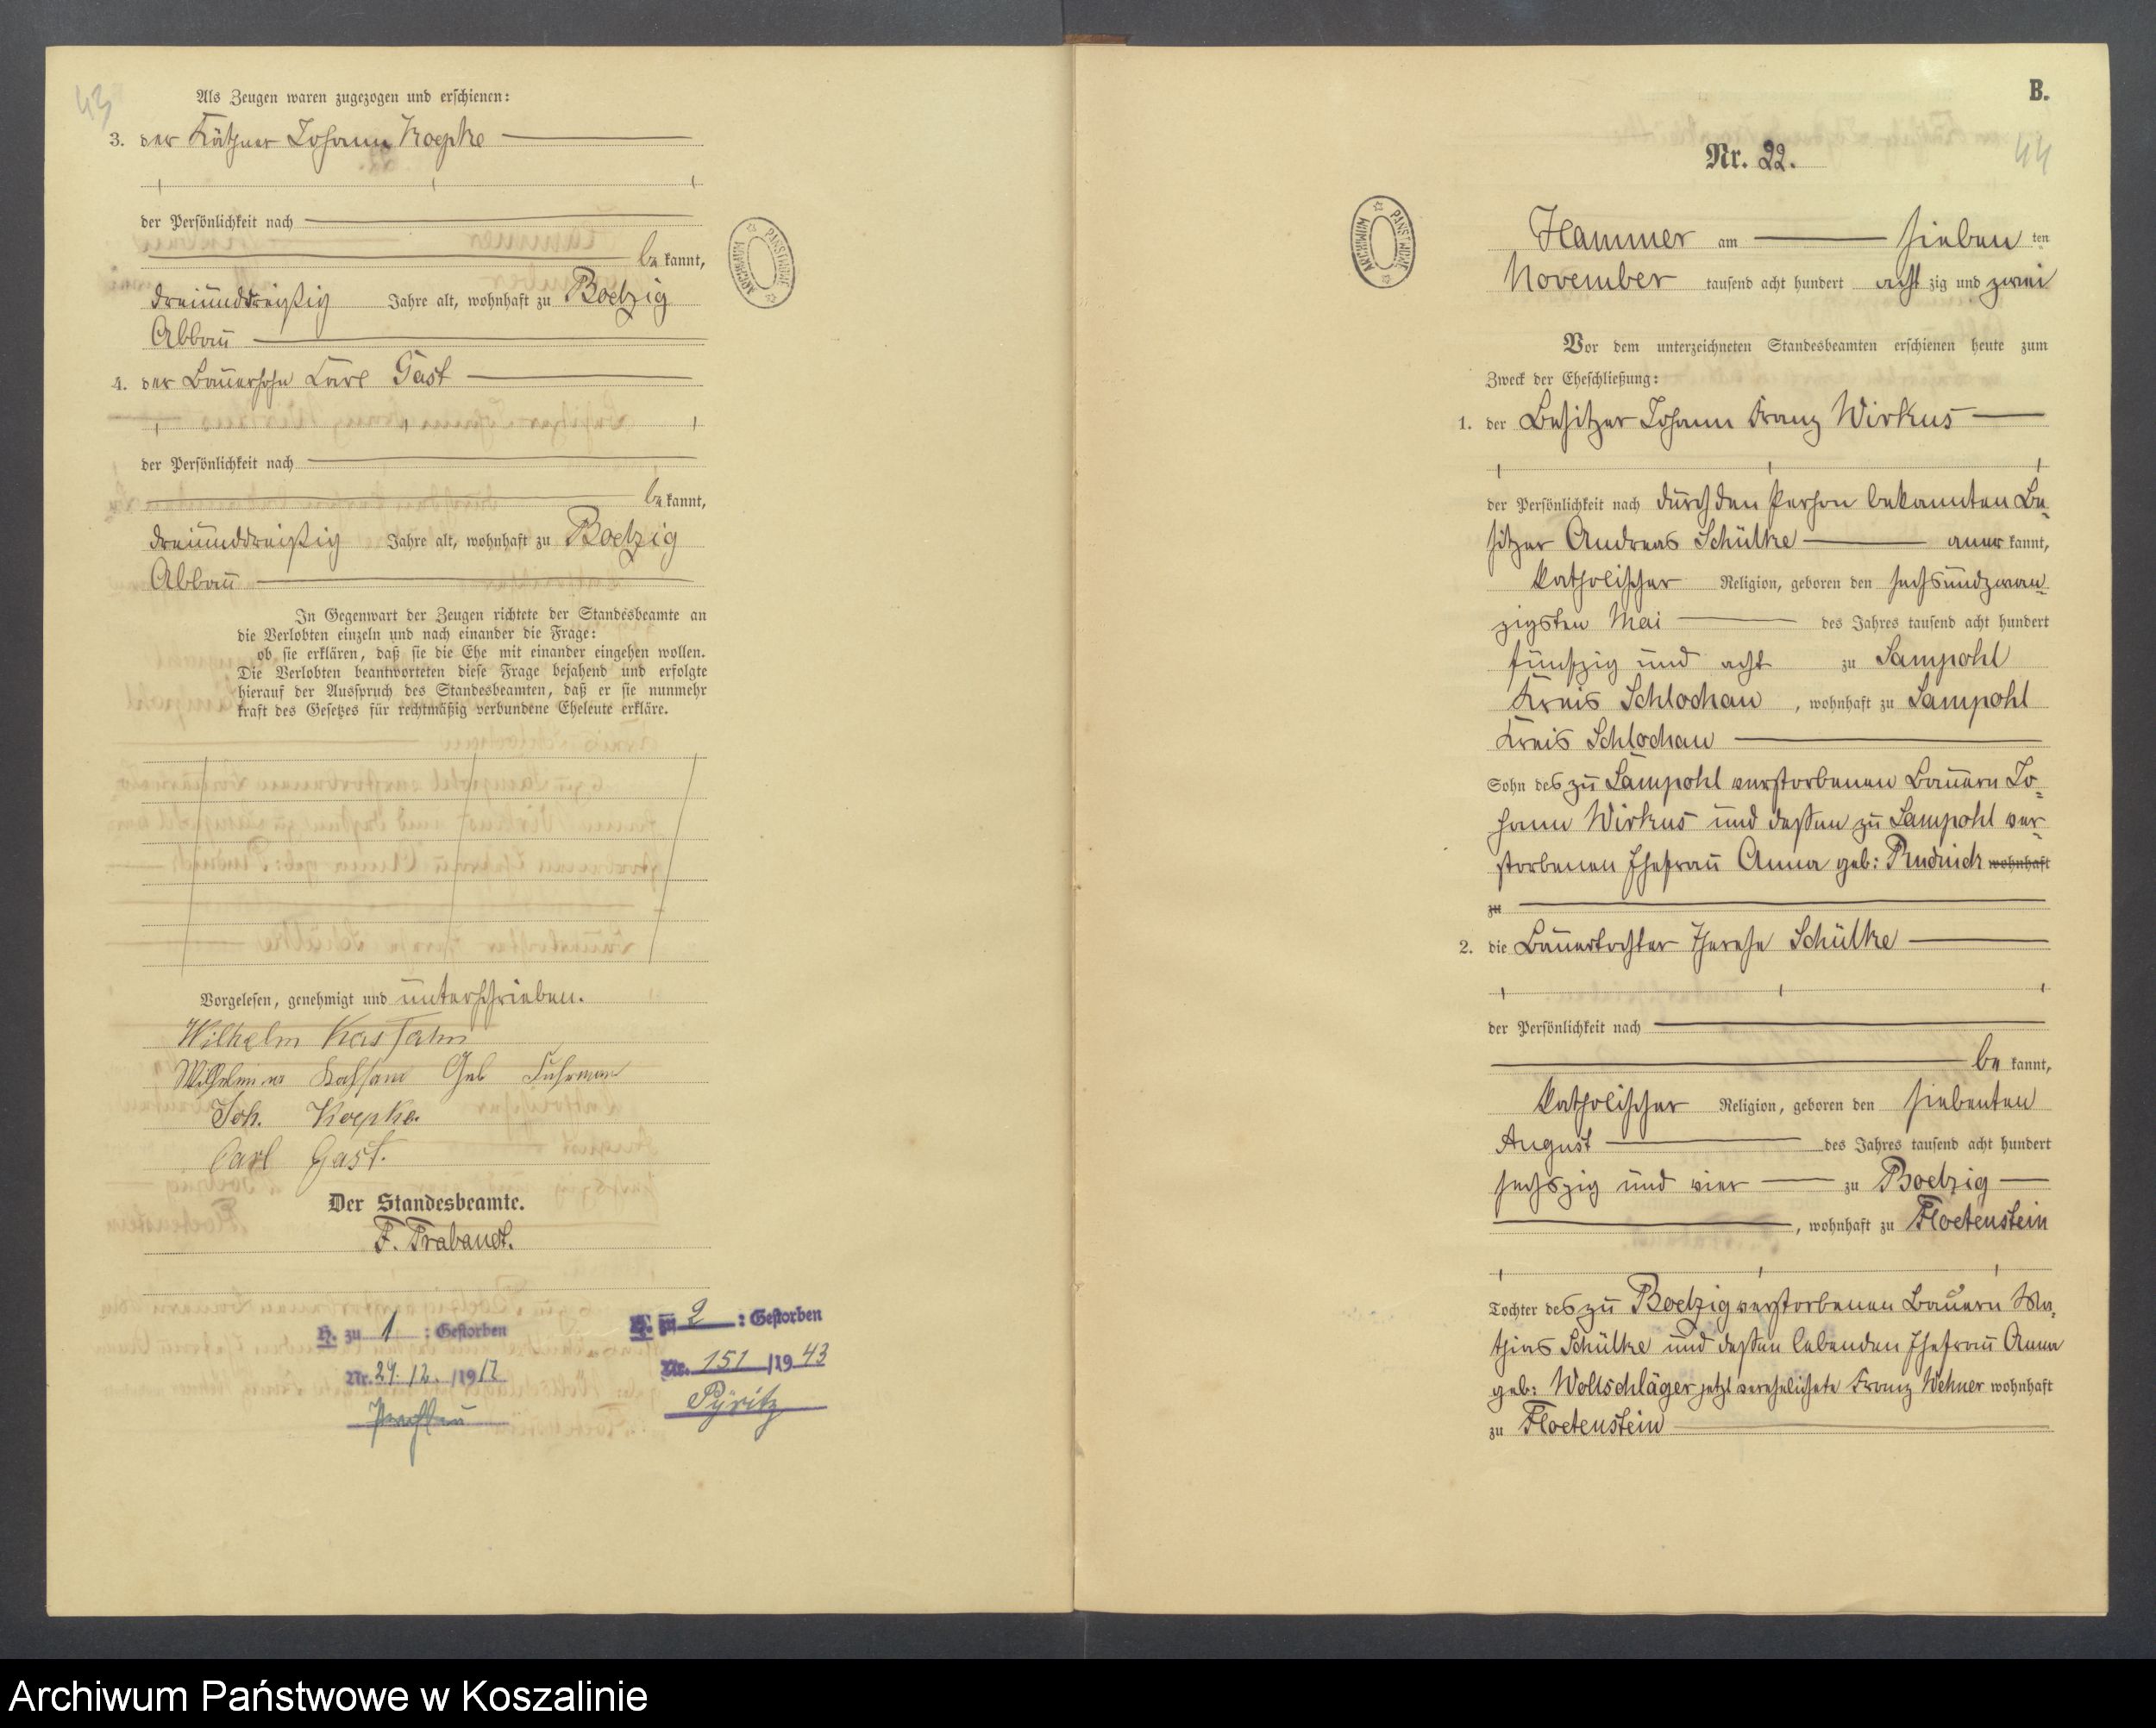 43
Als Zeugen waren zugezogen und erschienen:
3. der Käthner Johann Koepke
der Persönlichkeit nach
be kannt,
dreiunddreißig Jahre alt, wohnhaft zu Boelzig
Abbau
4. der Bauersohn Carl Gast
der Persönlichkeit nach
be kannt,
dreiunddreißig Jahre alt, wohnhaft zu Boelzig
Abbau
In Gegenwart der Zeugen richtete der Standesbeamte an
die Verlobten einzeln und nach einander die Frage:
ob sie erklären, daß sie die Ehe mit einander eingehen wollen.
Die Verlobten beantworteten diese Frage bejahend und erfolgte
hierauf der Ausspruch des Standesbeamten, daß er sie nunmehr
kraft des Gesetzes für rechtmäßig verbundene Eheleute erkläre.
Vorgelesen, genehmigt und unterschrieben.
Wilhelm
Geb
Joh. Koepke.
Carl Gast.
Der Standesbeamte.
F. Trabandt.
H. zu 1 : Gestorben
Nr. 24.12. /1917
H. zu 2 : Gestorben
Nr. 151 /19 43
Pyritz
ARCHIWUM PAŃSTWOWE
B.
44
Nr. 22.
ARCHIWUM PAŃSTWOWE
Hammer am sieben ten
November tausend acht hundert acht zig und zwei
Vor dem unterzeichneten Standesbeamten erschienen heute zum
Zweck der Eheschließung:
1. der Besitzer Johann Franz Wirkus
der Persönlichkeit nach durch den Person bekannten Be-
sitzer Andreas Schülke aner kannt,
katholischer Religion, geboren den sechsundzwan-
zigsten Mai des Jahres tausend acht hundert
fünfzig und acht zu Sampohl
Kreis Schlochau, wohnhaft zu Sampohl
Kreis Schlochau
Sohn des zu Sampohl verstorbenen Bauern Jo-
hann Wirkus und deßen zu Sampohl ver-
storbenen Ehefrau Anna geb: Rudnick wohnhaft
zu
2. die Bauertochter Therese Schülke
der Persönlichkeit nach
be kannt,
katholischer Religion, geboren den siebenten
August des Jahres tausend acht hundert
sechszig und vier zu Boelzig
, wohnhaft zu Floetenstein
Tochter des zu Boelzig verstorbenen Bauern Ma-
thias Schülke und deßen lebenden Ehefrau Anna
geb: Woltschläger jetzt verehelichte Franz Wehner wohnhaft
zu Floetenstein
Archiwum Państwowe w Koszalinie